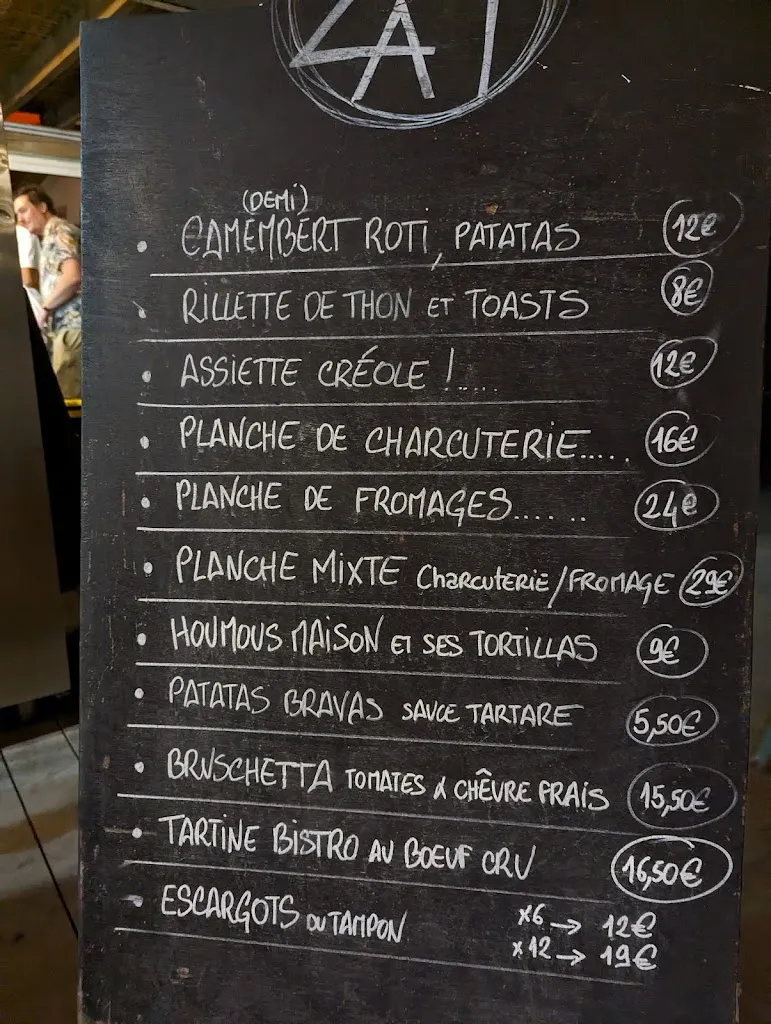 ZAT
(DEMI)
CAMEMBERT ROTI, PATATAS 12€
RILLETTE DE THON ET TOASTS 8€
ASSIETTE CRÉOLE !.... 12€
PLANCHE DE CHARCUTERIE..... 16€
PLANCHE DE FROMAGES...... 24€
PLANCHE MIXTE CHARCUTERIE/FROMAGE 29€
HOUMOUS MAISON ET SES TORTILLAS 9€
PATATAS BRAVAS SAUCE TARTARE 5,50€
BRUSCHETTA TOMATES & CHÊVRE FRAIS 15,50€
TARTINE BISTRO AU BOEUF CRU 16,50€
ESCARGOTS DU TAMPON x6 → 12€
x12 → 19€